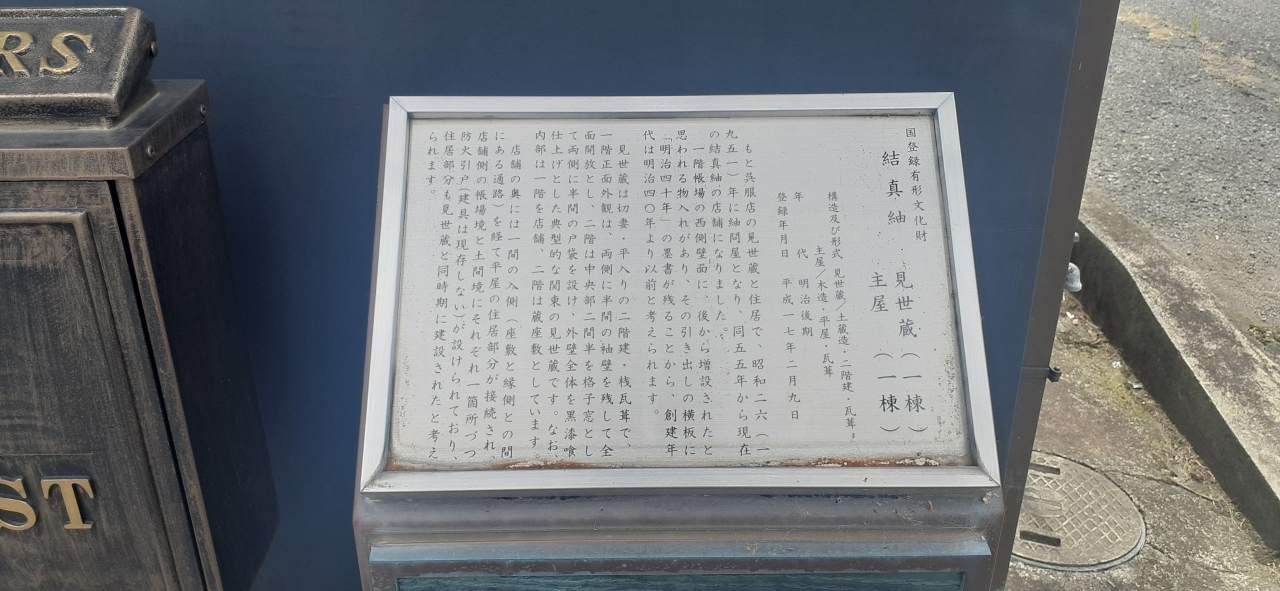 国登録有形文化財
結真紬 見世蔵(一棟)
主屋(一棟)
構造及び形式 見世蔵/土蔵造・二階建・瓦葺。
主屋/木造・平屋・瓦葺
年代 明治後期
登録年月日 平成一七年二月九日
もと呉服店の見世蔵と住居で、昭和二六(一
九五一)年に紬問屋となり、同五五年から現在
の結真紬の店舗になりました。
一階帳場の西側壁面に、後から増設されたと
思われる物入れがあり、その引き出しの横板に
「明治四十年」の墨書が残ることから、創建年
代は明治四〇年より以前と考えられます。
見世蔵は切妻・平入りの二階建・桟瓦葺で、
一階正面外観は、両側に半間の袖壁を残して全
面開放とし、二階は中央部二間半を格子窓とし
て両側に半間の戸袋を設け、外壁全体を黒漆喰
仕上げとした典型的な関東の見世蔵です。なお、
内部は一階を店舗、二階は蔵座敷としています。
店舗の奥には一間の入側(座敷と縁側との間
にある通路)を経て平屋の住居部分が接続され、
店舗側の帳場境と土間境にそれぞれ一箇所づつ
防火引戸(建具は現存しない)が設けられており、
住居部分も見世蔵と同時期に建設されたと考え
られます。
RS
ST